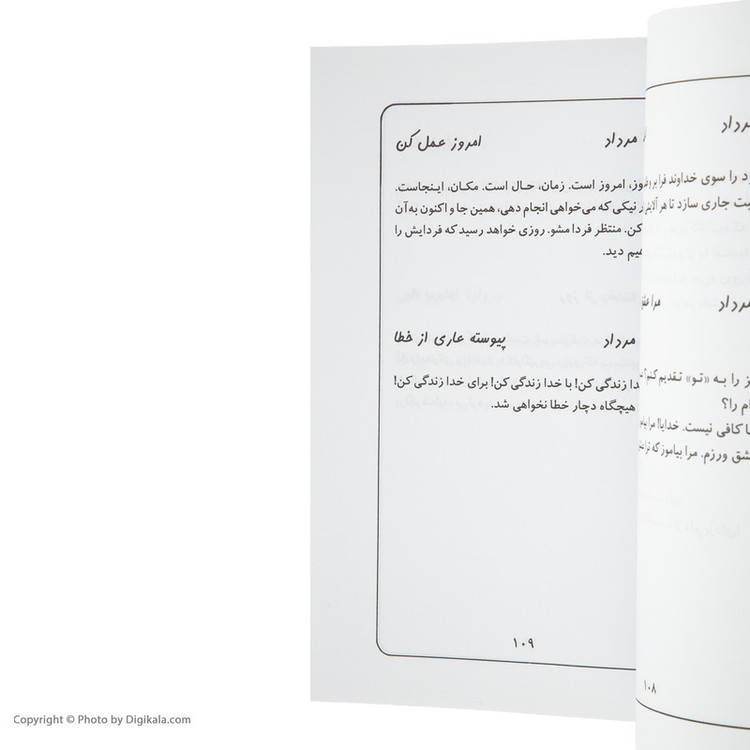 مرداد
د را سوی خداوند فرا بر و
بت جاری سازد تا هر آلایش
مرداد
مرا عشق
ز را به «تو» تقدیم کنم؟
ام را؟
ا کافی نیست. خدایا! مرا بیاموز
شق ورزم. مرا بیاموز که ترا
۱۰۸
مرداد امروز عمل کن
روز، امروز است. زمان، حال است. مکان، اینجاست.
نیکی که می‌خواهی انجام دهی، همین جا و اکنون به آن
کن. منتظر فردا مشو. روزی خواهد رسید که فردایش را
هیم دید.
مرداد پیوسته عاری از خطا
دا زندگی کن! با خدا زندگی کن! برای خدا زندگی کن!
هیچگاه دچار خطا نخواهی شد.
۱۰۹
Copyright © Photo by Digikala.com